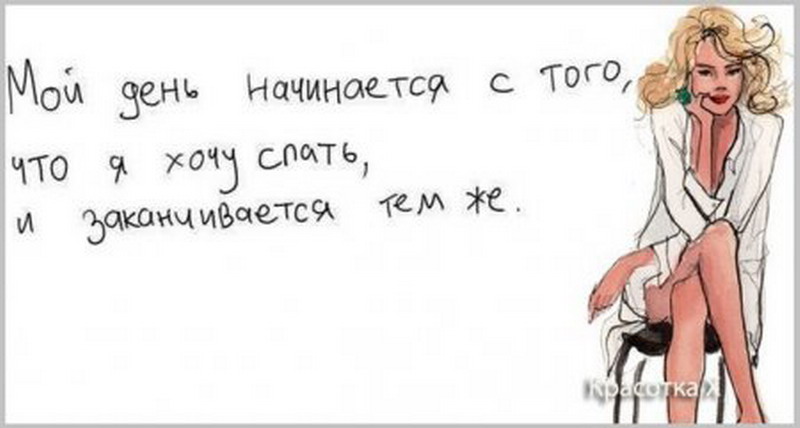 Мой день начинается с того,
что я хочу спать,
и заканчивается тем же.
Красотка Х